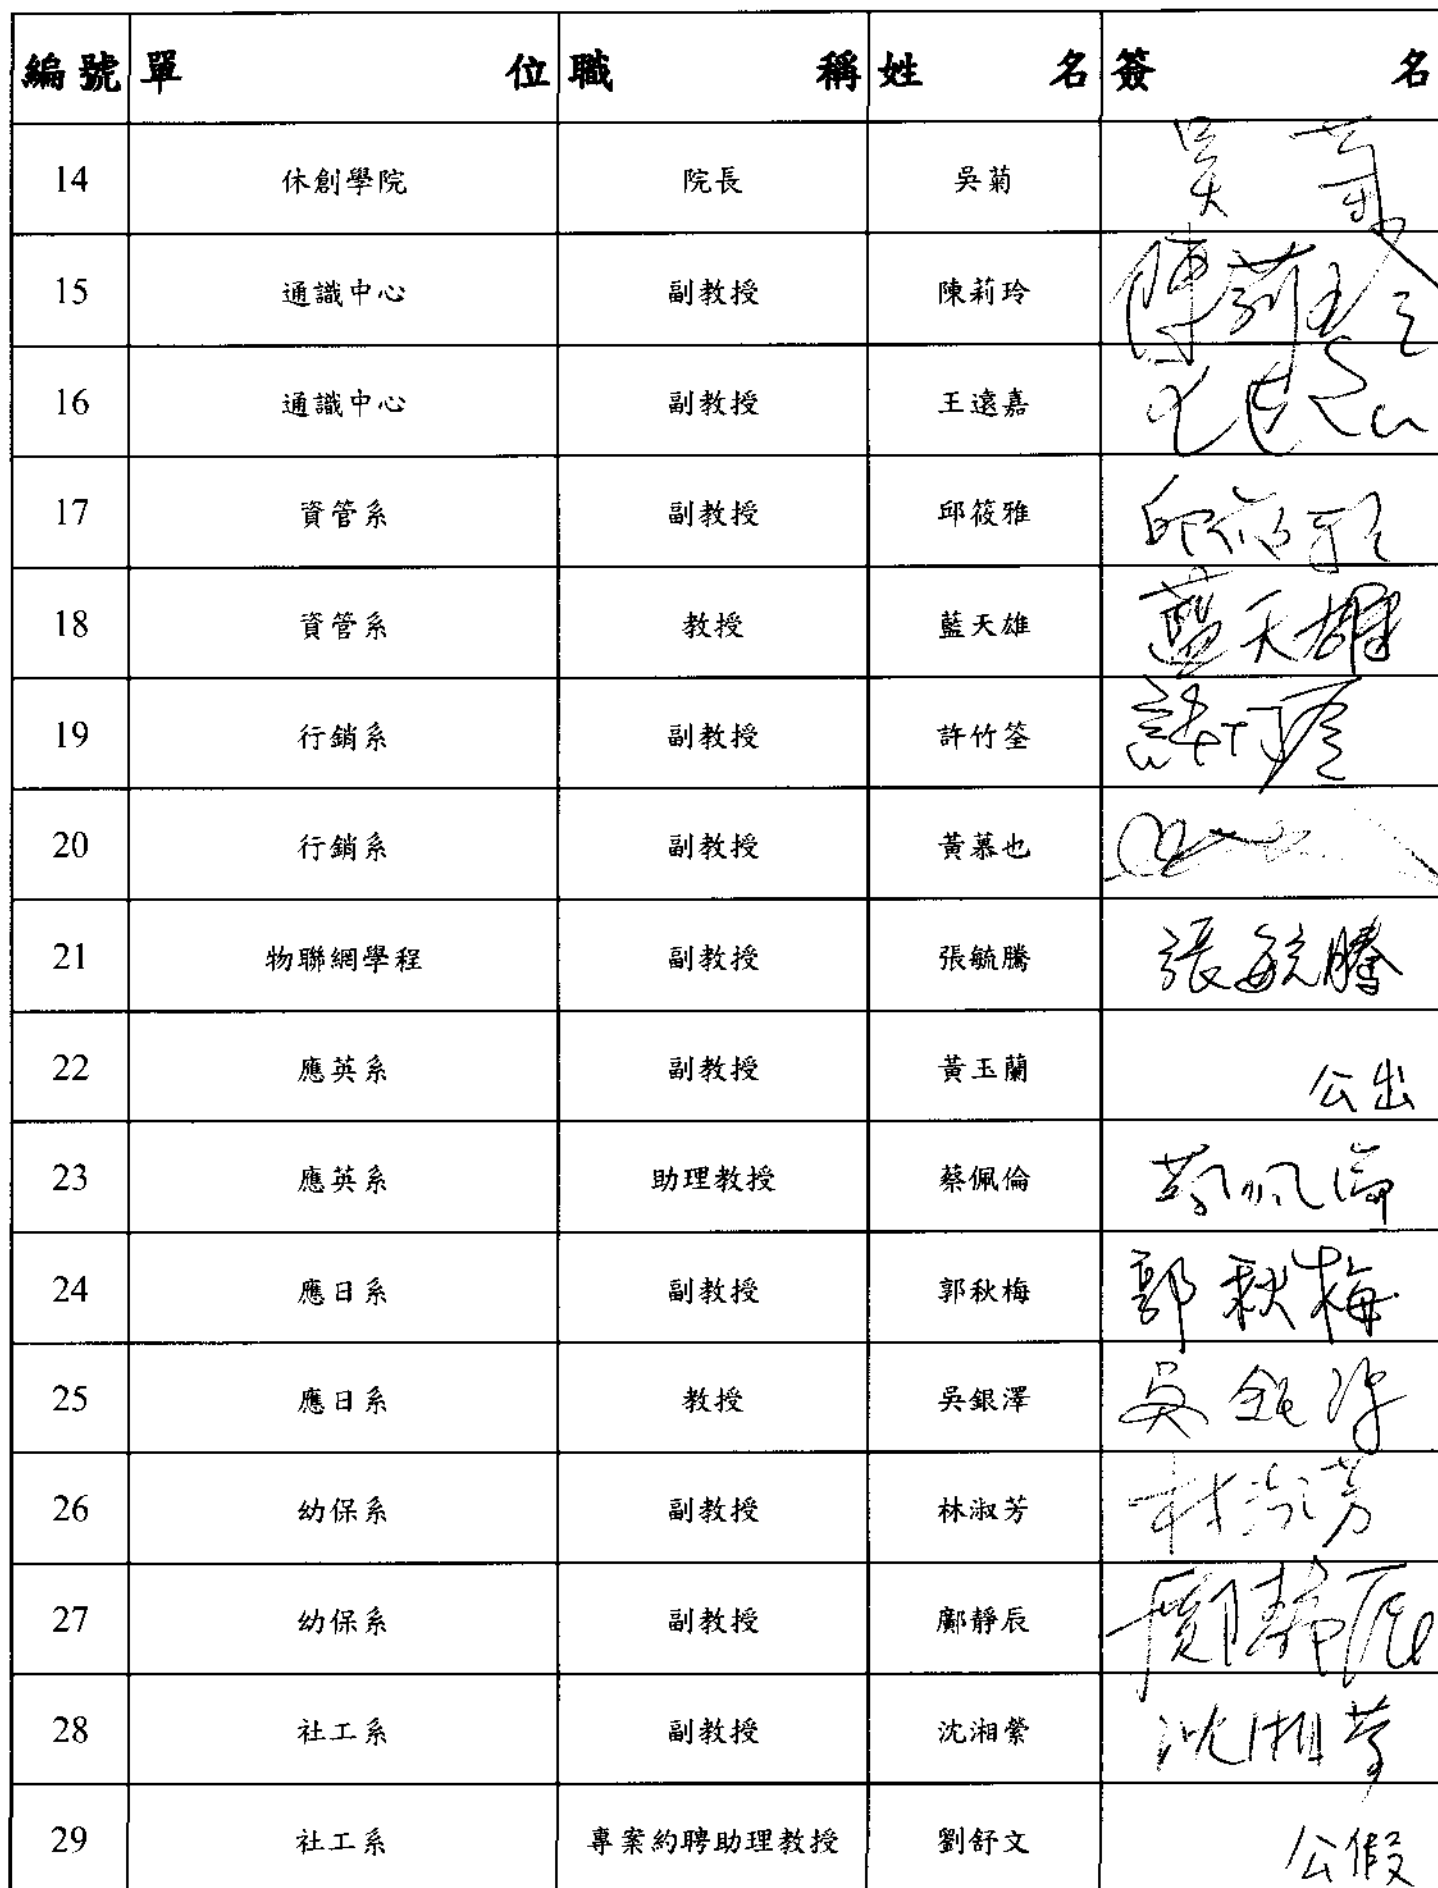 編號 單位 職稱 姓名 簽名
14 休創學院 院長 吳菊 吳菊
15 通識中心 副教授 陳莉玲 陳莉玲
16 通識中心 副教授 王遠嘉
17 資管系 副教授 邱筱雅 邱筱雅
18 資管系 教授 藍天雄 藍天雄
19 行銷系 副教授 許竹筌 許竹筌
20 行銷系 副教授 黃慕也
21 物聯網學程 副教授 張毓騰 張毓騰
22 應英系 副教授 黃玉蘭 公出
23 應英系 助理教授 蔡佩倫 蔡佩倫
24 應日系 副教授 郭秋梅 郭秋梅
25 應日系 教授 吳銀澤 吳銀澤
26 幼保系 副教授 林淑芳 林淑芳
27 幼保系 副教授 鄺靜辰 鄺靜辰
28 社工系 副教授 沈湘縈 沈湘縈
29 社工系 專案約聘助理教授 劉舒文 公假